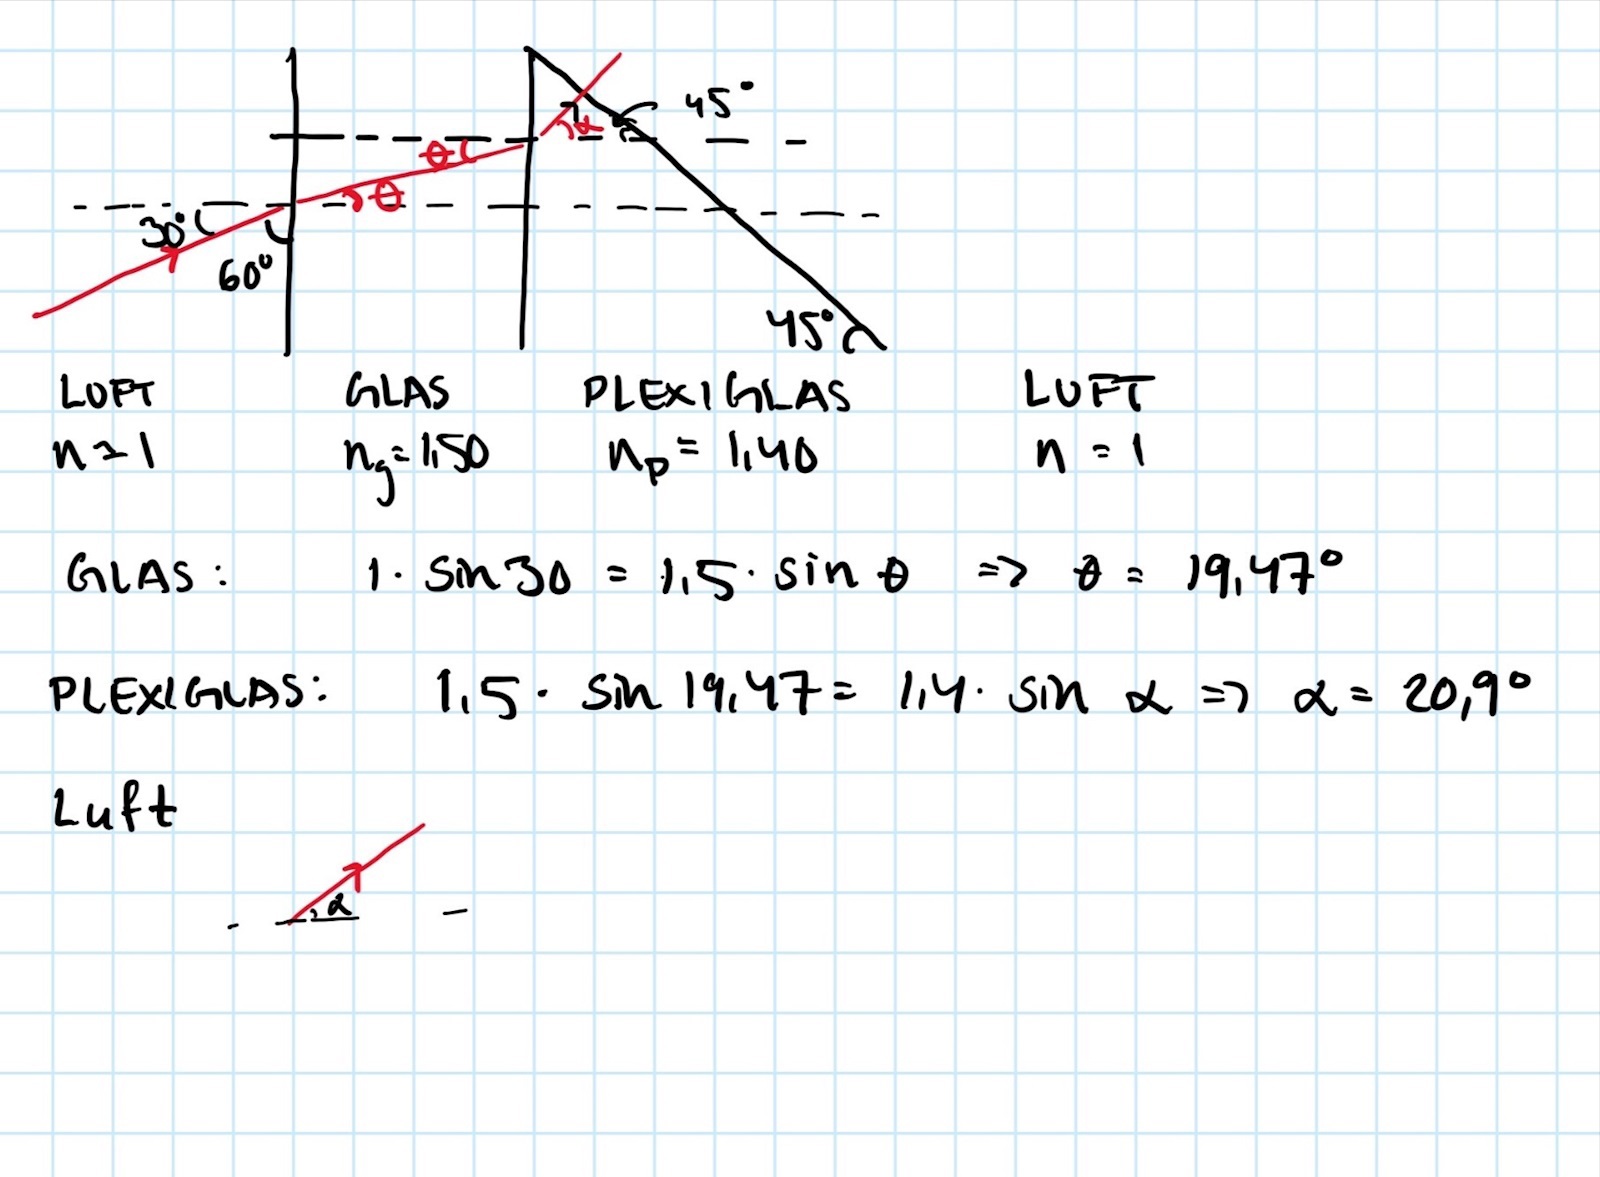 45°
θ α
θ
30°
60°
45°
LUFT GLAS PLEXIGLAS LUFT
n=1 ng=1,50 np=1,40 n=1
GLAS: 1· sin30 = 1,5· sin θ => θ = 19,47°
PLEXIGLAS: 1,5· sin 19,47= 1,4· sin α => α = 20,9°
Luft
α